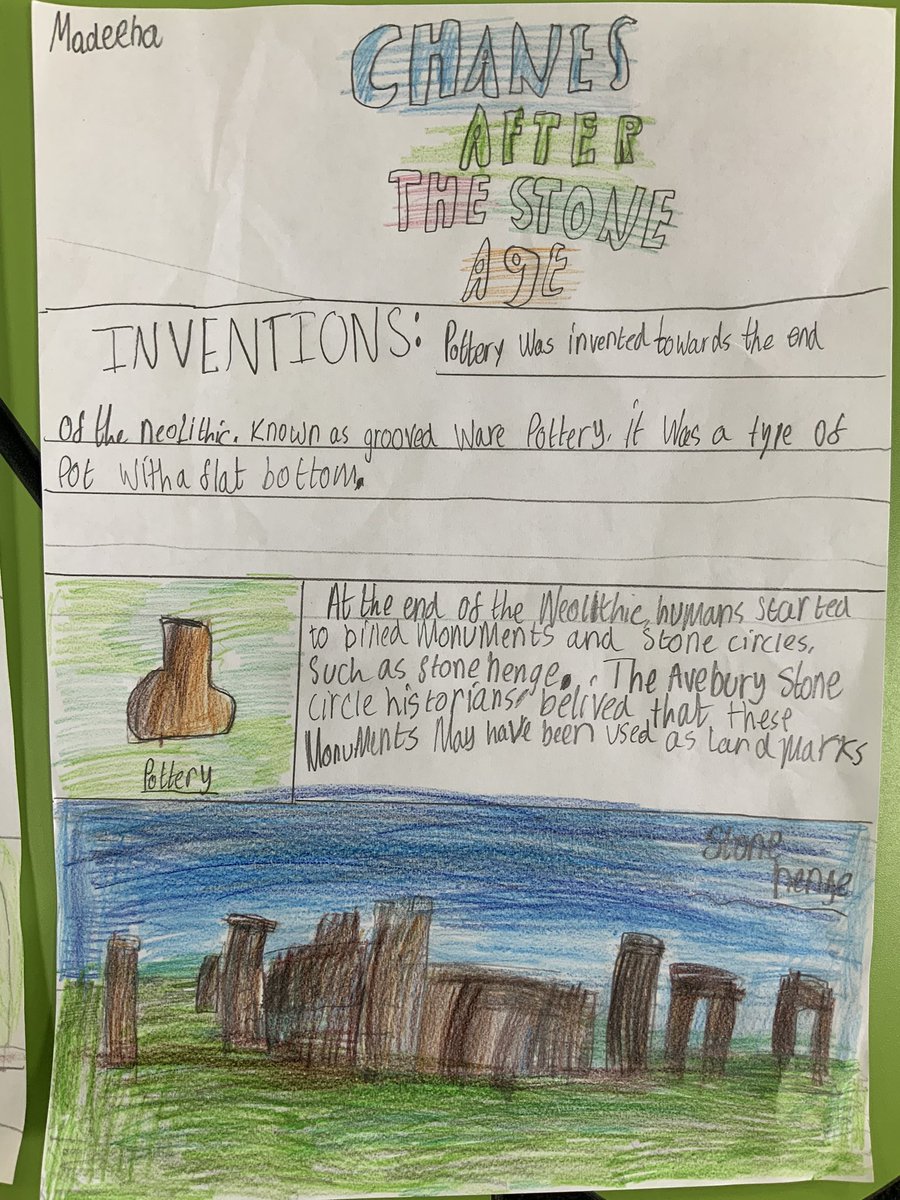 Madeeha
CHANES
AFTER
THE STONE
AGE
INVENTIONS: Pottery Was invented towards the end
Of the neolithic. Known as grooved Ware Pottery. it Was a type of
Pot with a flat bottom.
Pottery
At the end of the Neolithic, humans started
to billed Monuments and Stone circles,
Such as Stone henge. , The Avebury Stone
circle historians belived that these
Monuments May have been used as Land Marks
Stone
henge